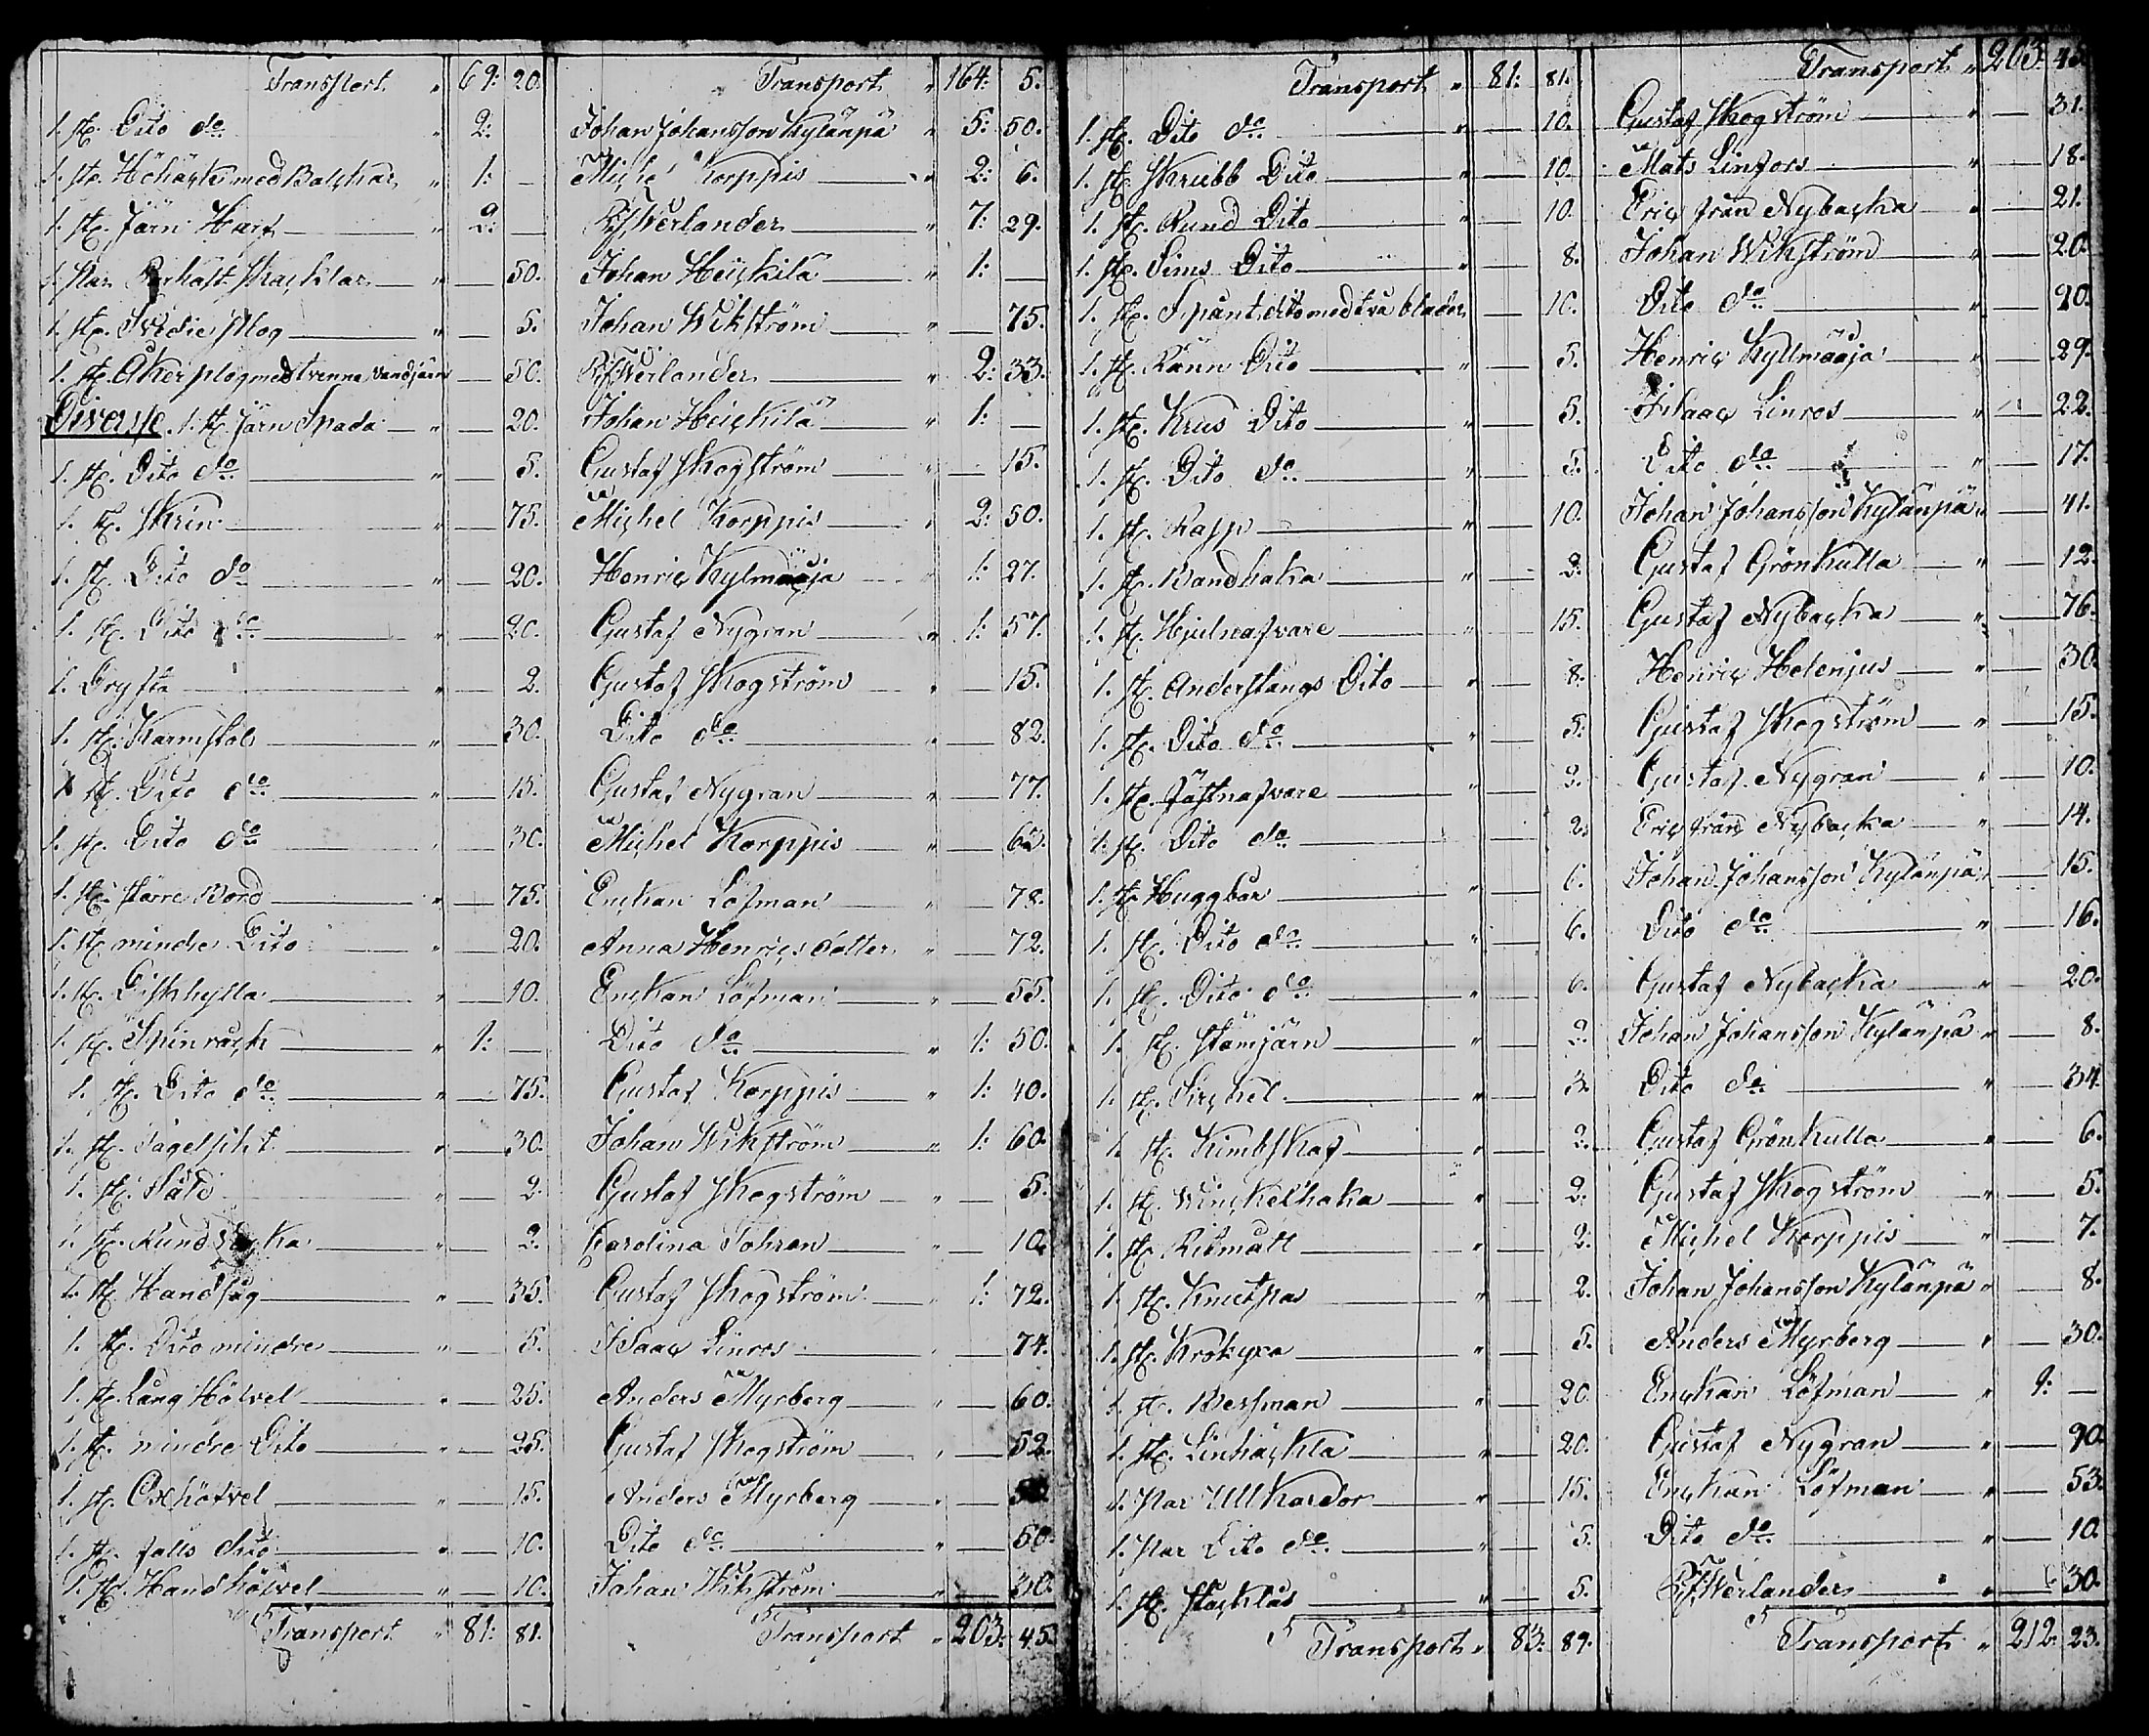 Transport " 69: 20. Transport " 164: 5.
1. st. Dito do " 2: Johan Johansson Kylänpä " 5: 50.
1. st. Höhäck med Balckar " 1: — Michel Korppis — " 2: 6.
1. st. Järn Harf — " 2: — Werlander — " 7: 29.
1. Par skacklar — " — 50. Johan Heickilä — " 1: —
1. st. Svedie plog — " — 5. Johan Wikström — " — 75.
1. st. Åker plog med tvenne vandjärn — 50. Werlander — " 2: 33.
Diverse. 1. st. järn Spada — " — 20. Johan Heickilä — " 1: —
1. st. Dito do — " — 5. Gustaf Skogström — " — 15.
1. st. Skrin — " — 75. Michel Korppis — " 2: 50.
1. st. Dito do — " — 20. Henric Kylmääja — " 1: 27.
1. st. Dito do — " — 20. Gustaf Nygran — " 1: 57.
1. Dryfta — " — 2. Gustaf Skogström — " — 15.
1. st. Karmstol — " — 30. Dito do — " — 82.
1. st. Dito do — " — 15. Gustaf Nygran — " — 77.
1. st. Dito do — " — 30. Michel Korppis — " — 65.
1. st. större Bord — " — 75. Enckan Löfman — " — 78.
1. st. mindre Dito — " — 20. Anna Henricsdotter " — 72.
1. st. Diskhylla — " — 10. Enckan Löfman — " — 55.
1. st. Spinråck — " 1: — Dito do — " 1: 50.
1. st. Dito do — " — 75. Gustaf Korppis — " 1: 40.
1. st. Tagelsikt — " — 30. Johan Wikström — " 1: 60.
1. st. Såld — " — 2. Gustaf Skogström — " — 5.
1. st. — " — 2. Karolina Tohran — " — 10.
1. st. Handsåg — " — 35. Gustaf Skogström — " 1: 72.
1. st. Dito mindre — " — 5. Isaac Linros — " — 74.
1. st. Lång Höfvel — " — 25. Anders Myrberg — " — 60.
1. st. mindre Dito — " — 25. Gustaf Skogström — " — 52.
1. st. Oxhöfvel — " — 15. Anders Myrberg — " —
1. st. falls dito — " — 10. Dito do — " — 50.
1. st. Handhöfvel — " — 10. Johan Wikström — " — 30.
Transport " 81: 81. Transport " 203: 45.
Transport " 81: 81. Transport " 203: 45.
1. st. Dito do — " — 10. Gustaf Skogström — " — 31.
1. st. Skrubb Dito — " — 10. Mats Linfors — " — 18.
1. st. Rund Dito — " — 10. Eric från Nybacka " — 21.
1. st. Sims Dito — " — 8. Johan Wikström — " — 20.
1. st. Spånt dito med två blader — 10. Dito do — " — 20.
1. st. Ränn Dito — " — 5. Henric Kyllmääja " — 29.
1. st. Krus Dito — " — 5. Isaac Linros — " — 22.
1. st. Dito do — " — 5. Dito do — " — 17.
1. st. Rasp — " — 10. Johan Johansson Kylänpä " — 41.
1. st. Bandhaka — " — 2. Gustaf Grönkulla — " — 12.
1. st. Hjulnafvare — " — 15. Gustaf Nybacka — " — 76.
1. st. Anderstangs Dito — " — 8. Henric Helenius — " — 30.
1. st. Dito do — " — 5. Gustaf Skogström — " — 15.
1. st. fästnafvare — " — 2. Gustaf Nygran — " — 10.
1. st. Dito do — 2. Eric från Nybacka — " — 14.
1. st. Huggbår — " — 6. Johan Johansson Kylänpä " — 15.
1. st. Dito do — " — 6. Dito do — " — 16.
1. st. Dito do — " — 6. Gustaf Nybacka — " — 20.
1. st. Stämjärn — " — 2. Johan Johansson Kylänpä " — 8.
1. st. Sirckel — " — 3. Dito do — " — 34.
1. st. Kimbskaf — " — 2. Gustaf Grönkulla — " — 6.
1. st. Winckelhaka — " — 2. Gustaf Skogström — " — 5.
1. st. Ritmått — " — 2. Michel Korppis — " — 7.
1. st. — " — 2. Johan Johansson Kylänpä " — 8.
1. st. Krokyxa — " — 5. Anders Myrberg — " — 30.
1. st. Bessman — " — 20. Enckan Löfman — " 2: —
1. st. Linhäckla — " — 20. Gustaf Nygran — " — 90.
1. Par Ullkardor — " — 15. Enckan Löfman — " — 53.
1. Par Dito do — " — 5. Dito do — " — 10.
1. st. Stacklås — " — 5. Werlander — " — 30.
Transport " 83: 89. Transport " 212: 23.